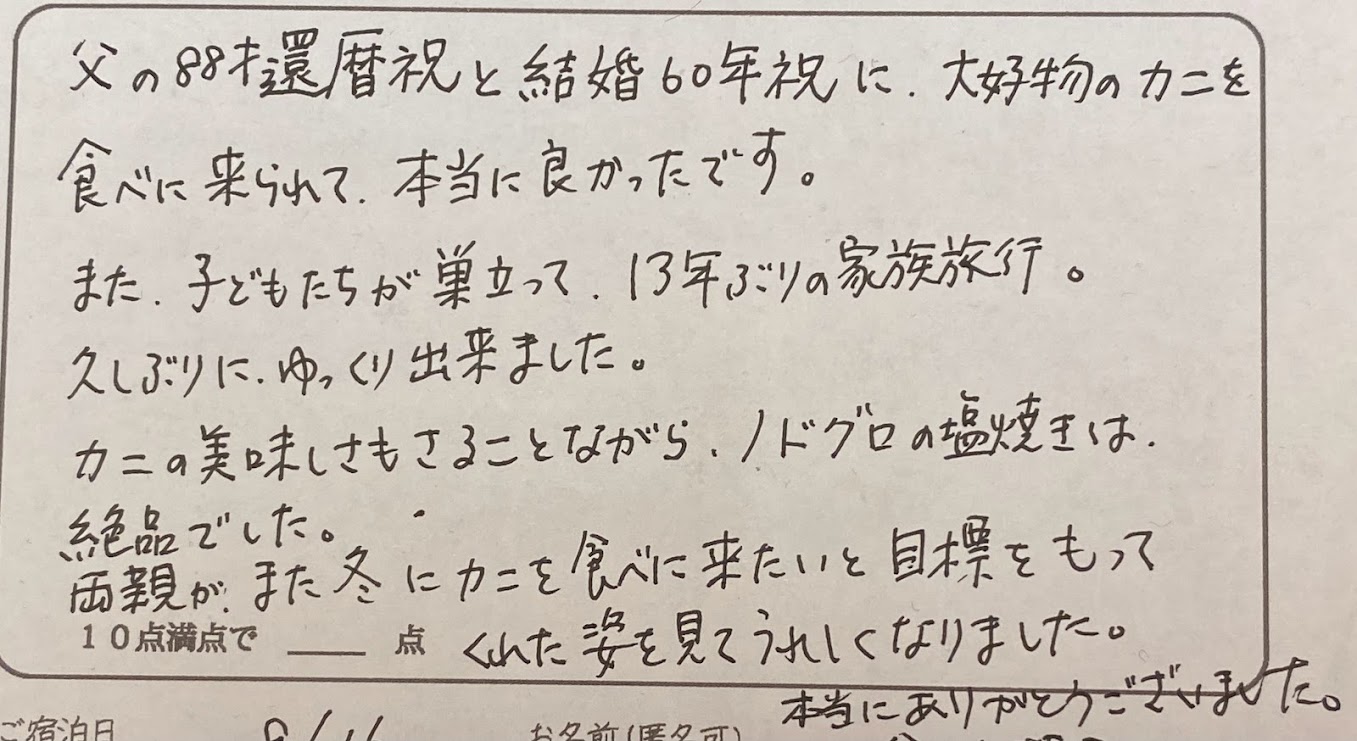 父の88才還暦祝と結婚60年祝に、大好物のカニを
食べに来られて、本当に良かったです。
また、子どもたちが巣立って、13年ぶりの家族旅行。
久しぶりに、ゆっくり出来ました。
カニの美味しさもさることながら、ノドグロの塩焼きは、
絶品でした。
両親が、また冬にカニを食べに来たいと目標をもって
くれた姿を見てうれしくなりました。
10点満点で ____ 点
本当にありがとうございました。
ご宿泊日
お名前(匿名可)